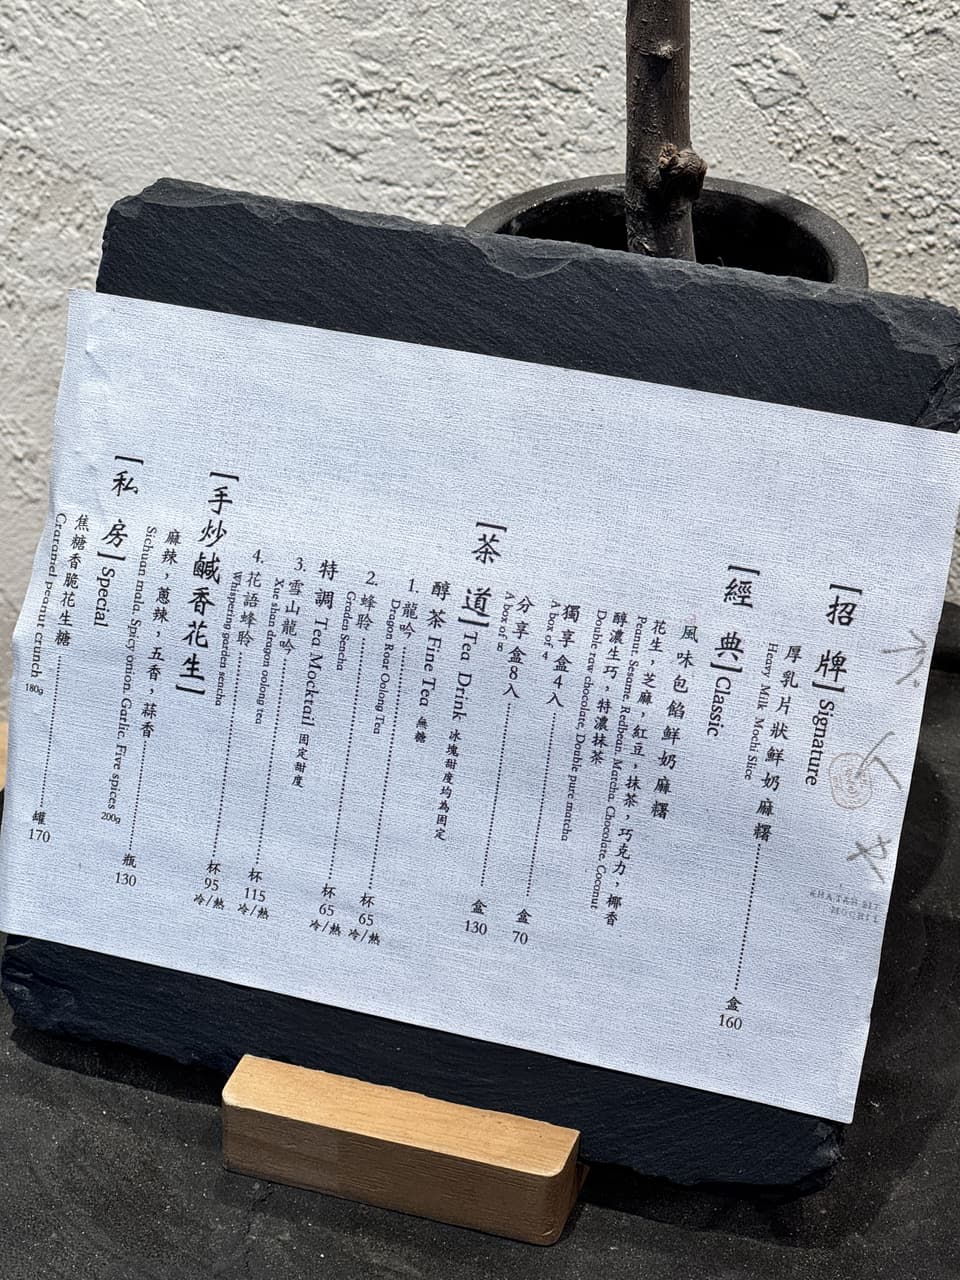 [招牌] Signature
厚乳片狀鮮奶麻糬 盒 160
Heavy Milk Mochi Slice
[經典] Classic
風味包餡鮮奶麻糬
花生，芝麻，紅豆，抹茶，巧克力，椰香
Peanut. Sesame. Redbean. Matcha. Chocolate. Coconut
醇濃生巧，特濃抹茶
Double raw chocolate. Double pure matcha
獨享盒4入 盒 70
A box of 4
分享盒8入 盒 130
A box of 8
[茶道] Tea Drink 冰塊甜度均為固定
醇茶 Fine Tea 無糖
1. 龍吟 杯 65 冷/熱
Dragon Roar Oolong Tea
2. 蜂聆 杯 65 冷/熱
Graden Sencha
特調 Tea Mocktail 固定甜度
3. 雪山龍吟 杯 115 冷/熱
Xue shan dragon oolong tea
4. 花語蜂聆 杯 95 冷/熱
Whispering garden sencha
[手炒鹹香花生]
麻辣，蔥辣，五香，蒜香 瓶 130
Sichuan mala. Spicy onion. Garlic. Five spices 200g
[私房] Special
焦糖香脆花生糖 罐 170
Craramel peanur crunch 180g